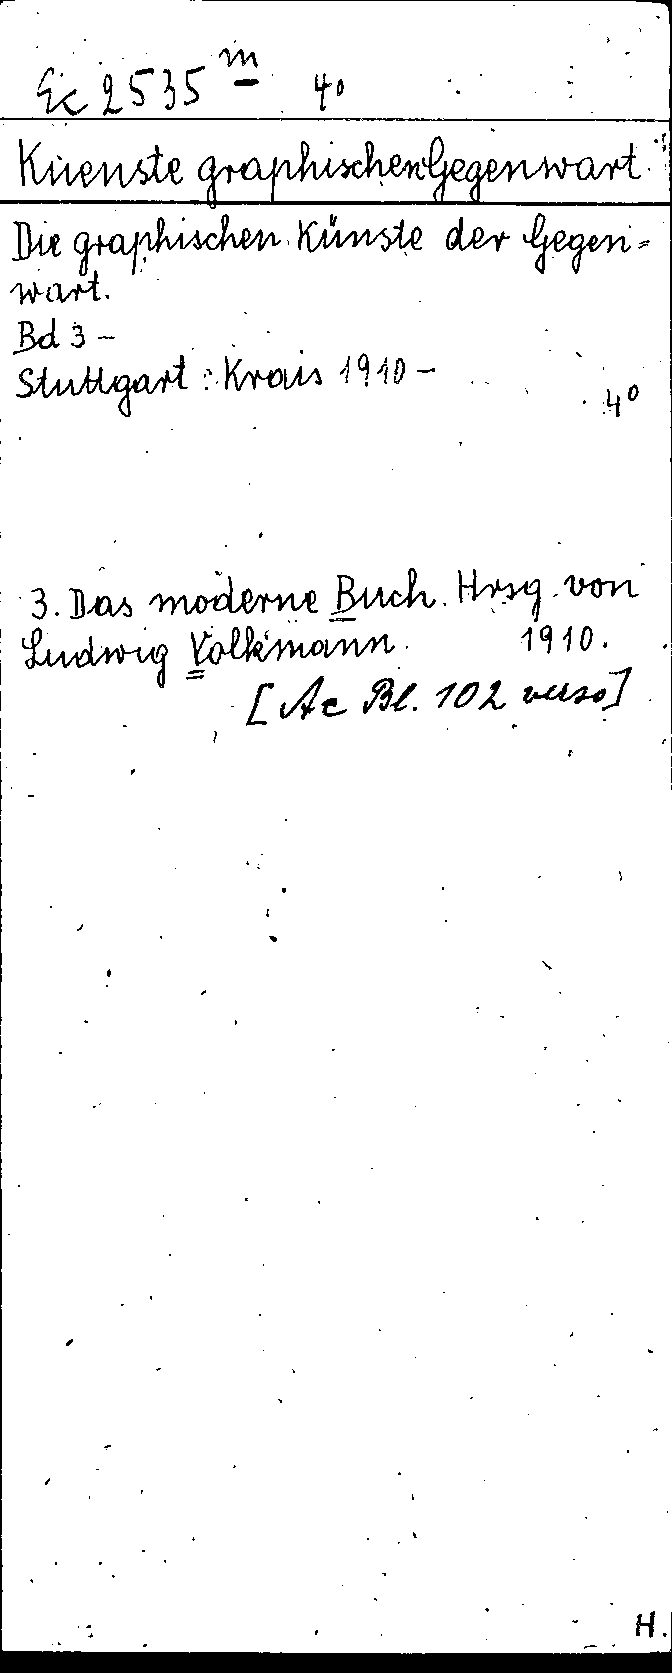 Ec 2535 m 4°
Kuenste graphischen Gegenwart
Die graphischen Künste der Gegen=
wart.
Bd 3 –
Stuttgart: Krais 1910 –
4°
3. Das moderne Buch. Hrsg. von
Ludwig Volkmann. 1910.
[Ac Bl. 102 verso]
H.